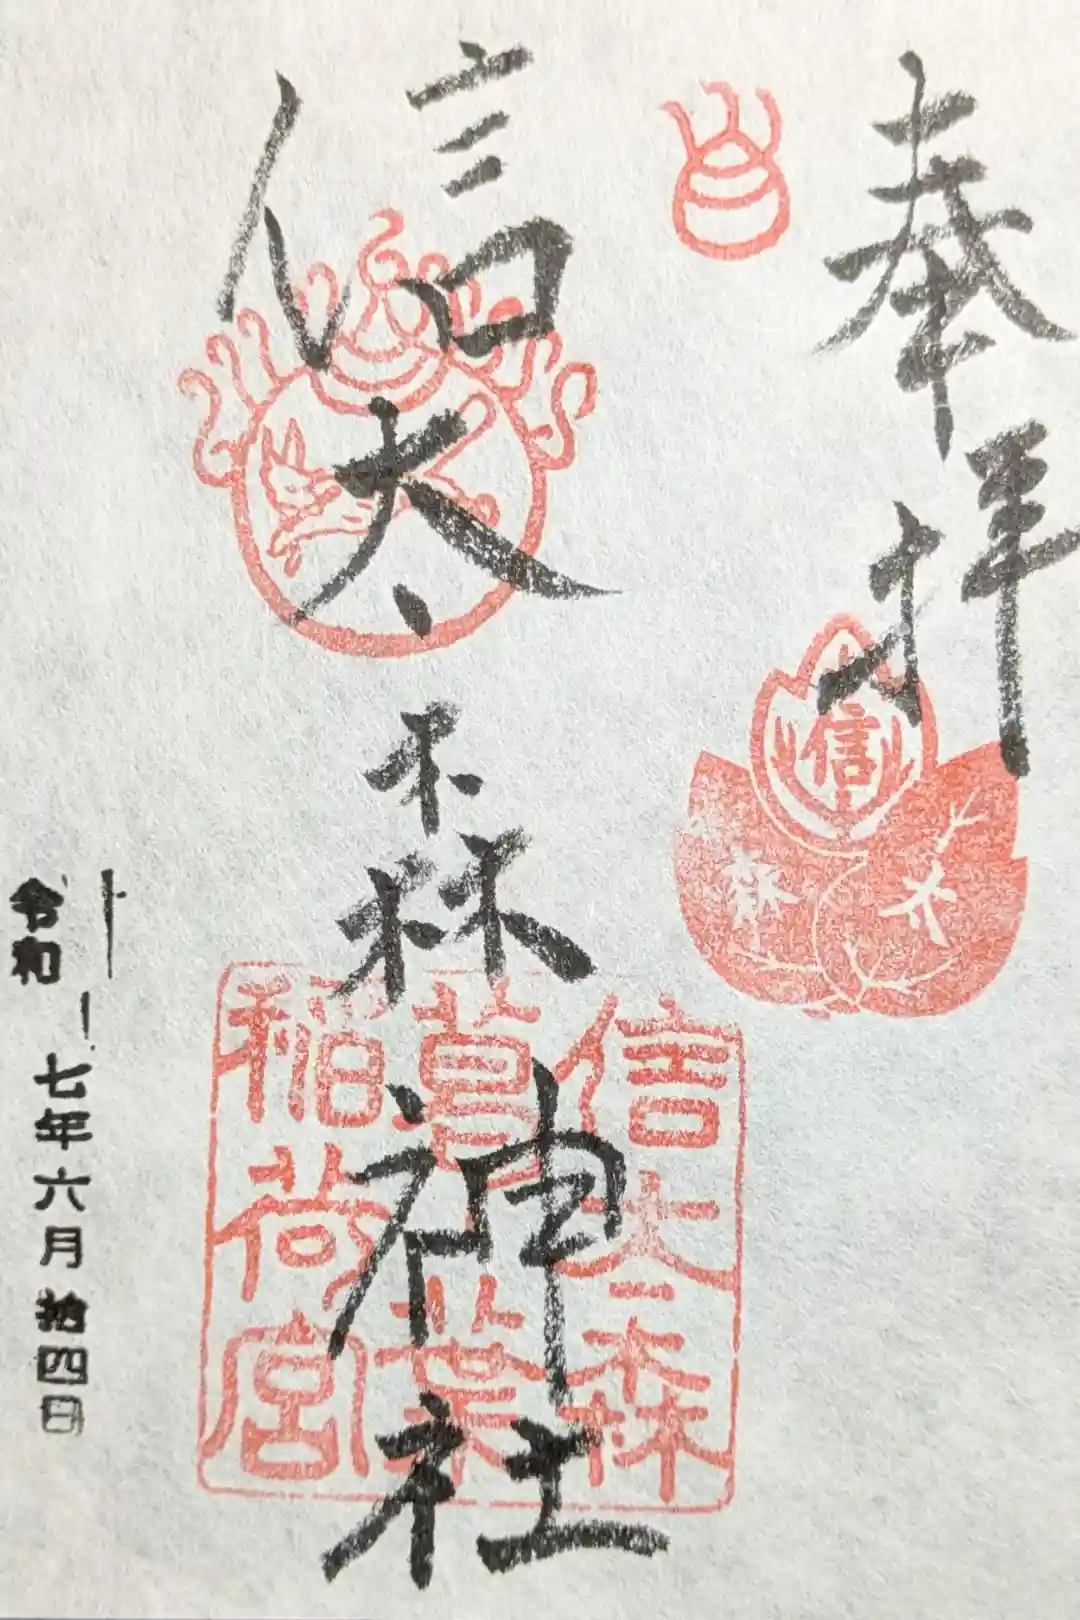 奉拝
信太森神社
信
森
信太森
葛葉
稲荷宮
令和
七年六月拾四日